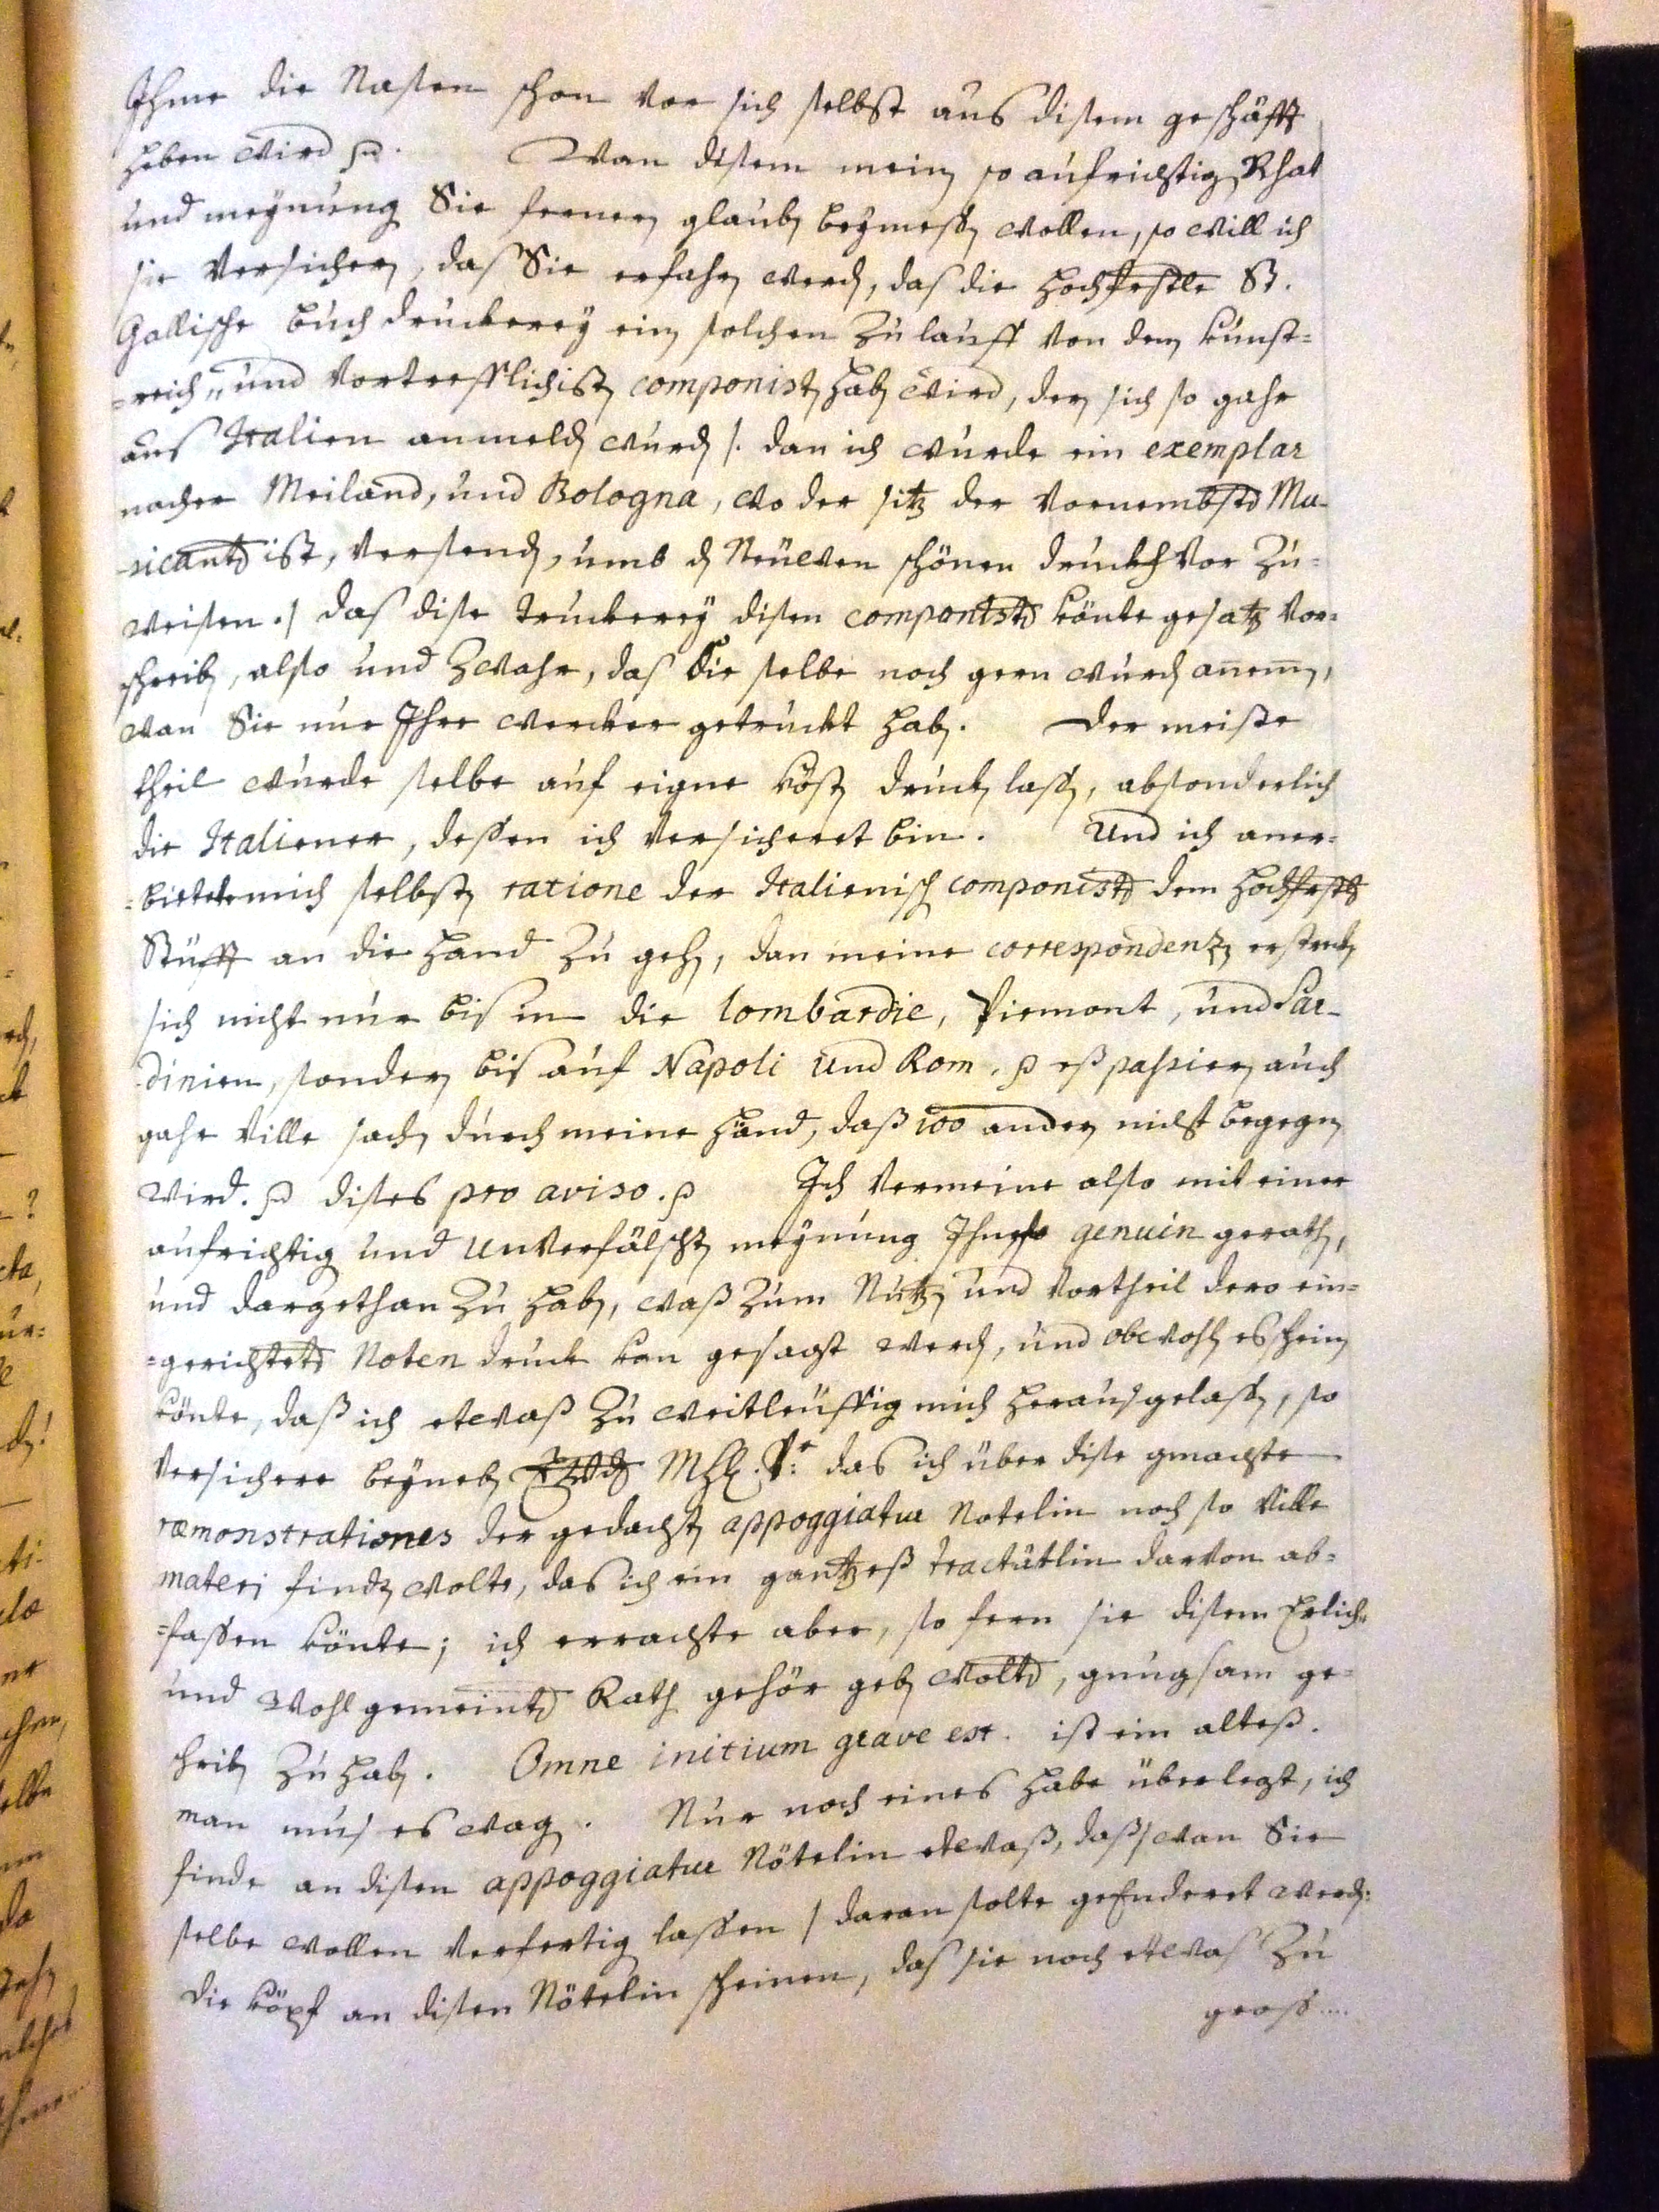 Ihme die Nasen schon vor sich selbst aus disem geschäfft
heben wird p. Wan disem mein so aufrichtig Rhat
und meynung Sie fernern glaub beymess wollen, so will ich
sie Versichern, das Sie erfahrn werd, das die hochfrstle St.
Gallische buch druckerey ein solchen Zulauff von den kunst=
=reich und Vortrefflichist componist hab wird, der sich so gahr
aus Italien anmeld wurd /. dan ich wurde ein exemplar
nacher Meiland, und Bologna, wo der sitz der Vornembstn Mu-
-sicantn ist, Versend, umb d Neüwen schönen druckh Vor Zu=
weisen ./ das dise truckerey disen componistn könte gesatz Vor=
schreib, also und Zwahr, das die selbe noch gern wurd annem,
wan Sie nur Ihre wercker getruckt hab. Der meiste
theil wurde selbe auf eigne köst druck lass, absonderlich
die Italiener, dessen ich Versicheret bin. Und ich aner=
=biete mich selbst ratione der Italienisch componistn dem hochfrstl
Stüfft an die hand Zu geh, dan meine correspondenz erstreck
sich nicht nur bis in die lombardie, Piemont, und Sar-
-dinien, sonder bis auf Napoli und Rom. p es passier auch
gahr Ville sach durch meine händ, daß 100 ander nicht begegn
wird. p dises pro aviso. p Ich Vermeine also mit einer
aufrichtig und unVerfälscht meynung Ihn genuin gerath,
und dargethan Zu hab, waß Zum Nutz und Vortheil dero ein=
=gerichtetn Noten druck kan gesagt werd, und obwohl es schein
könte, daß ich etwaß Zu weitleüffig mich herausgelass, so
Versichere beyneb das ich über dise gmachte
ræmonstrationes der gedacht appoggiatur Notelin noch so Ville
materi find wolte, das ich ein gantzeß tractätlin darvon ab=
=fassen könte; ich errachte aber, so fern sie disem Erlich
und wohl gemeintn Rath gehör geb woltn, gnugsam ge=
schrib Zu hab. Omne initium grave est. ist ein alteß.
man mus es wag. Nur noch eines habe überlegt, ich
finde an disen appoggiatur Nötelin etwaß, daß / wan Sie
selbe wollen Verfertig lassen / daran solte geEnderet werd:
die köpf an disen Nötelin scheinen, das sie noch etwas Zu
gross....